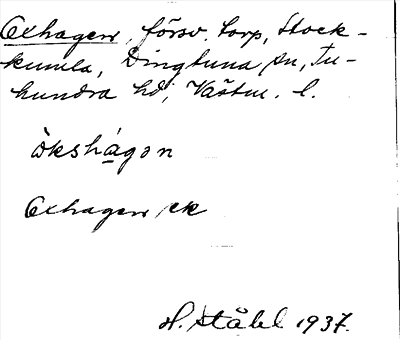 Oxhagen, försv. torp, Stock-
kumla, Dingtuna sn, Tu-
hundra hd, Västm. l.
òkshágon
Oxhagen ek
H. Ståhl 1937.